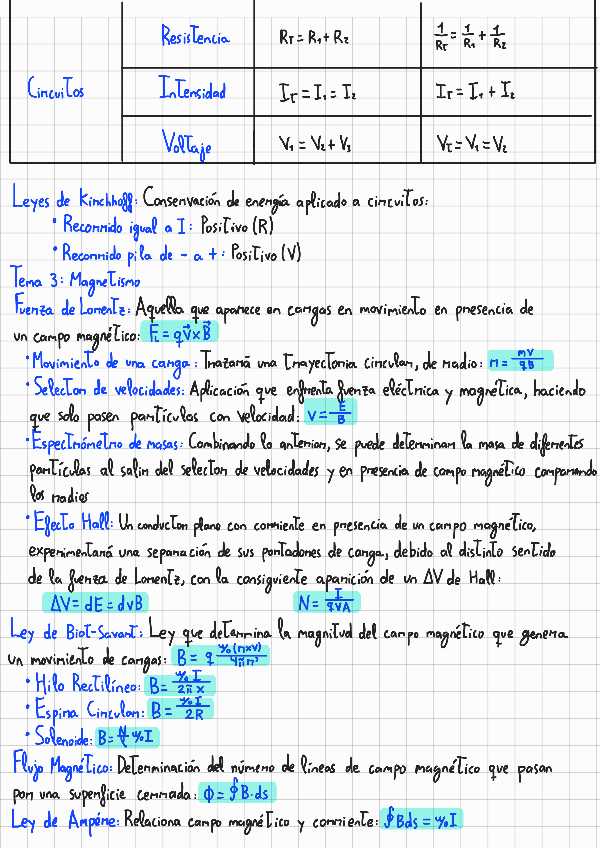 Resistencia R_T = R₁ + R₂ 1/R_T = 1/R₁ + 1/R₂
Circuitos Intensidad I_T = I₁ = I₂ I_T = I₁ + I₂
Voltaje V₁ = V₂ + V₃ V_T = V₁ = V₂
Leyes de Kirchhoff: Conservación de energía aplicado a circuitos:
• Recorrido igual a I: Positivo (R)
• Recorrido pila de - a +: Positivo (V)
Tema 3: Magnetismo
Fuerza de Lorentz: Aquella que aparece en cargas en movimiento en presencia de
un campo magnético: F_L = qV⃗xB⃗
• Movimiento de una carga: Trazará una trayectoria circular, de radio: r = mv/qB
• Selector de velocidades: Aplicación que enfrenta fuerza eléctrica y magnética, haciendo
que solo pasen partículas con velocidad: v = E/B
• Espectrómetro de masas: Combinando lo anterior, se puede determinar la masa de diferentes
partículas al salir del selector de velocidades y en presencia de campo magnético comparando
los radios
• Efecto Hall: Un conductor plano con corriente en presencia de un campo magnético,
experimentará una separación de sus portadores de carga, debido al distinto sentido
de la fuerza de Lorentz, con la consiguiente aparición de un ΔV de Hall:
ΔV = dE = dvB N = I/qVA
Ley de Biot-Savart: Ley que determina la magnitud del campo magnético que genera
un movimiento de cargas: B = q μ₀(r×v)/4πr³
• Hilo Rectilíneo: B = μ₀I/2πx
• Espira Circular: B = μ₀I/2R
• Solenoide: B = N/l μ₀I
Flujo Magnético: Determinación del número de líneas de campo magnético que pasan
por una superficie cerrada: Φ = ∮B·ds
Ley de Ampére: Relaciona campo magnético y corriente: ∮Bds = μ₀I